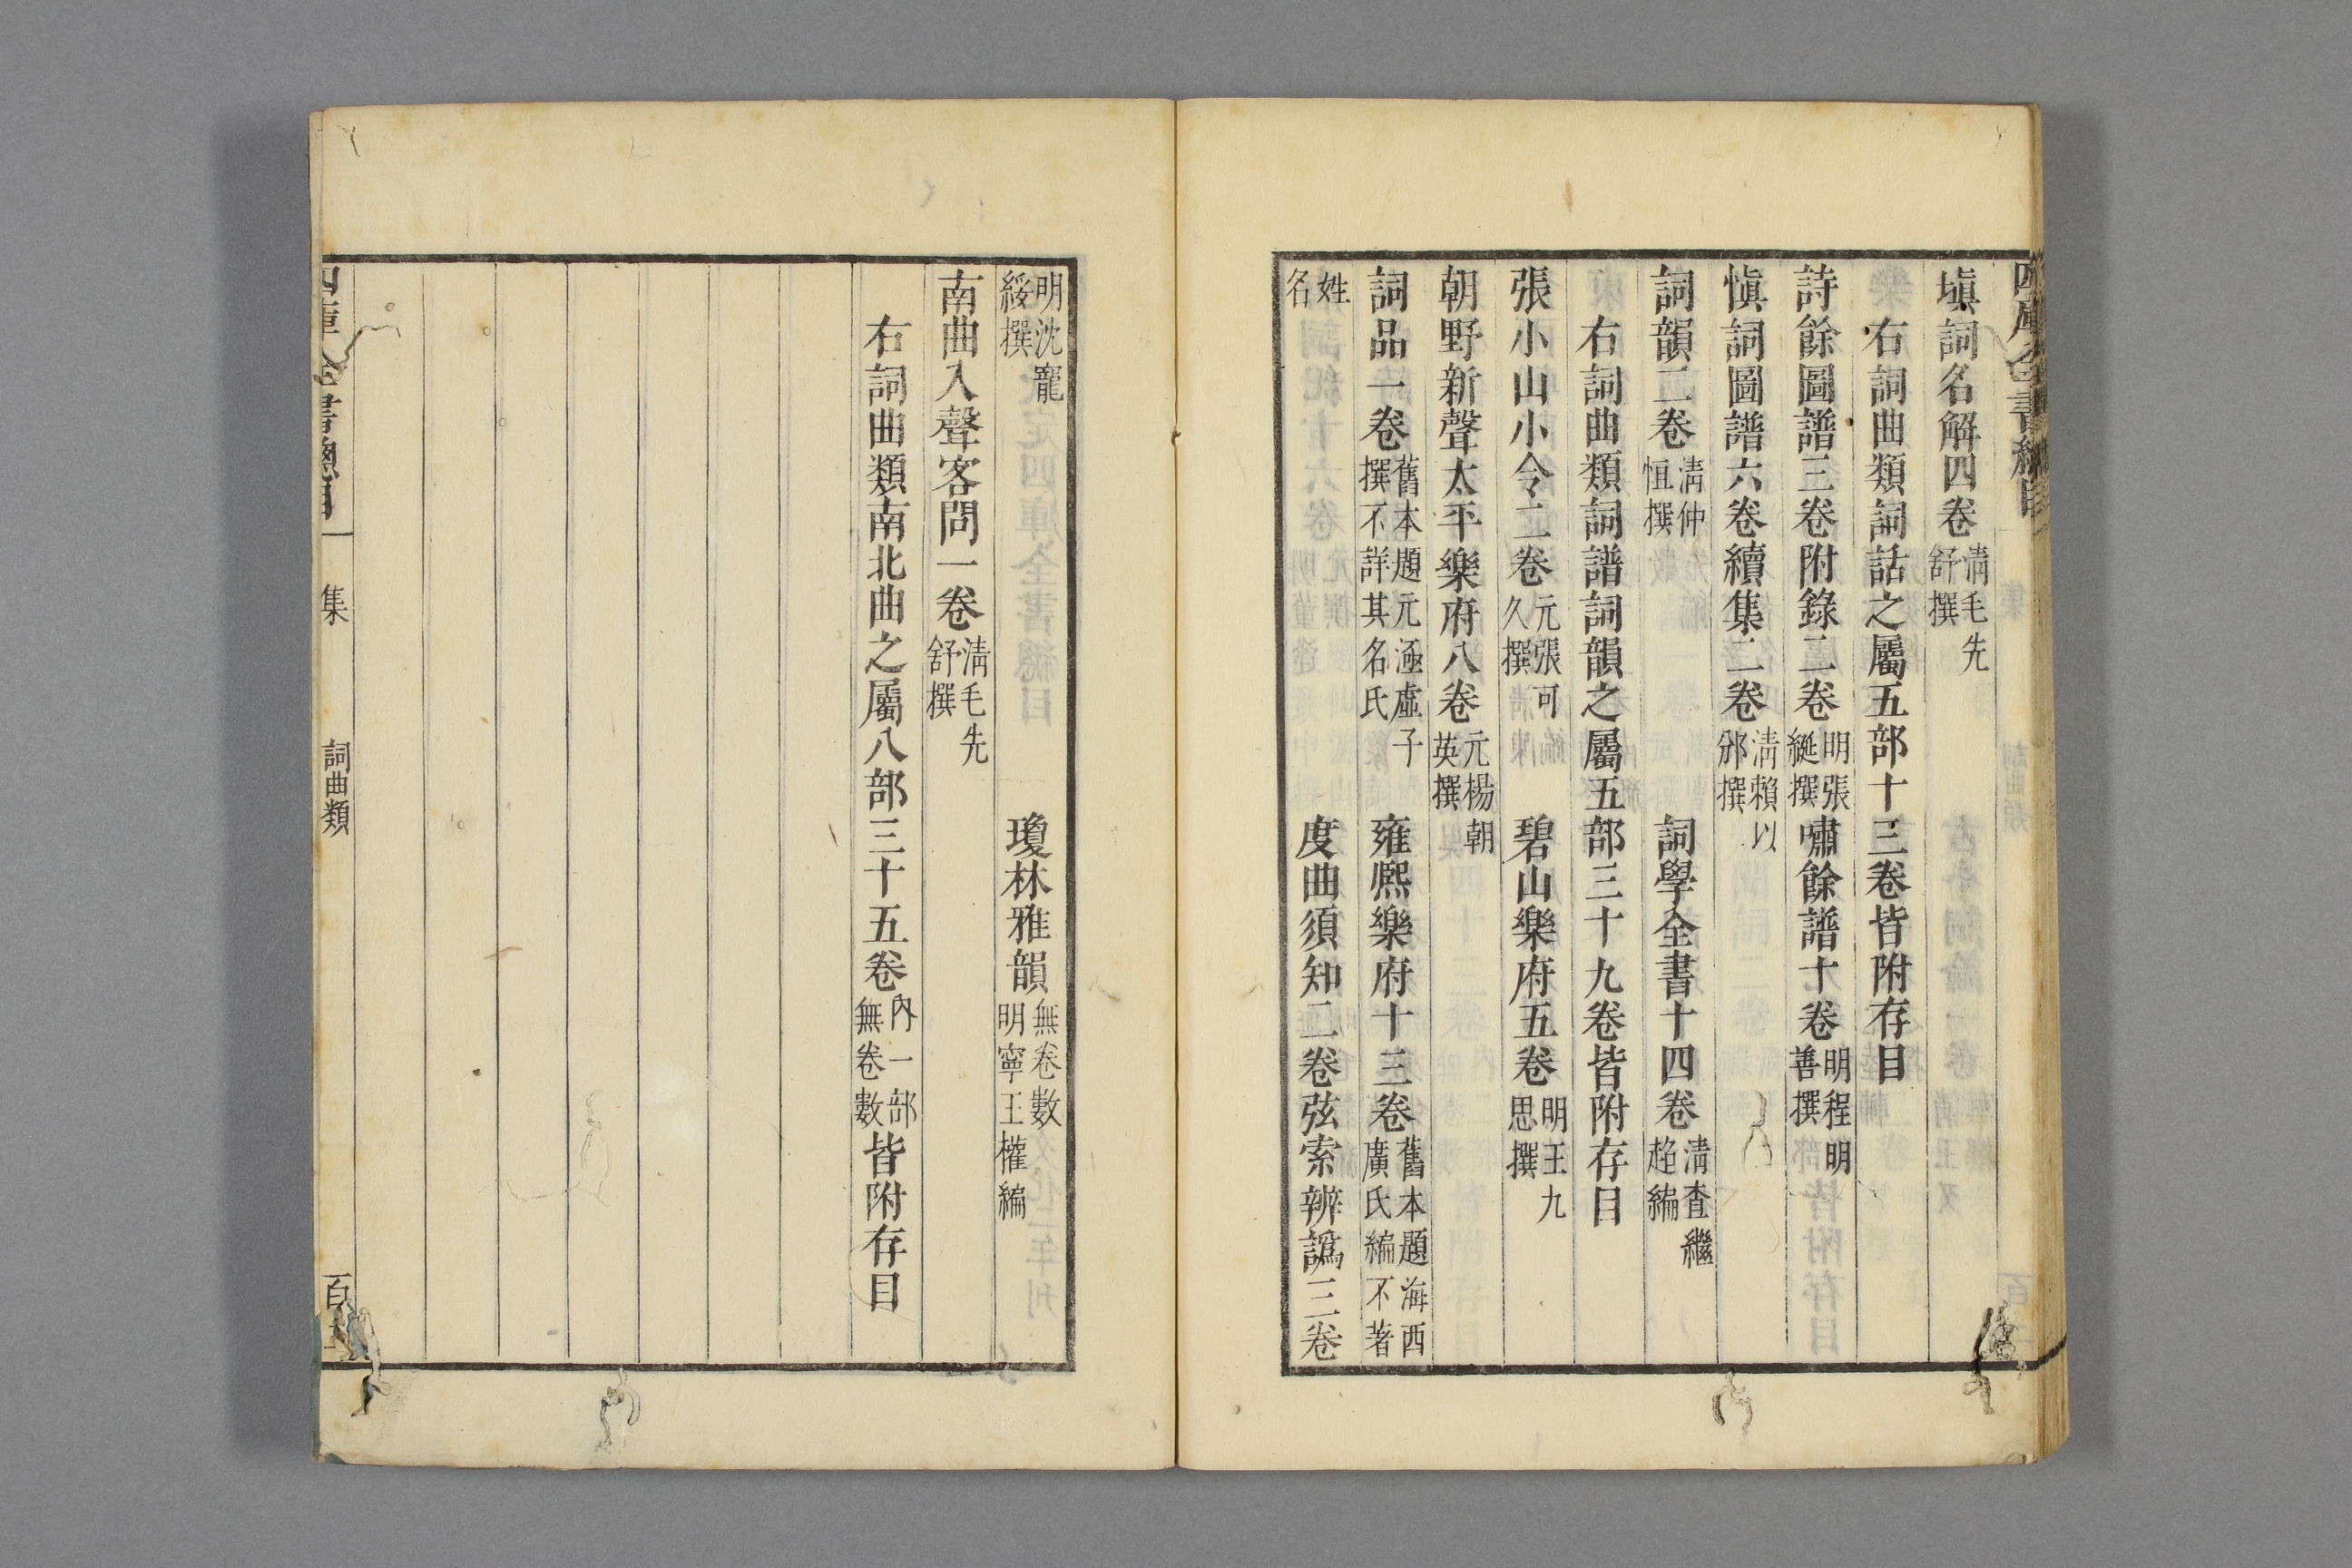 四庫全書總目
塡詞名解四卷 淸毛先舒撰
右詞曲類詞話之屬五部十三卷皆附存目
詩餘圖譜三卷附錄二卷 明張綖撰 嘯餘譜十卷 明程明善撰
愼詞圖譜六卷續集二卷 淸賴以邠撰
詞韻二卷 淸仲恒撰 詞學全書十四卷 淸査繼超編
右詞曲類詞譜詞韻之屬五部三十九卷皆附存目
張小山小令二卷 元張可久撰 碧山樂府五卷 明王九思撰
朝野新聲太平樂府八卷 元楊朝英撰
詞品一卷 舊本題元涵虛子撰不詳其名氏 雍熙樂府十三卷 舊本題海西廣氏編不著
姓名 度曲須知二卷弦索辨譌三卷
明沈寵綏撰 瓊林雅韻 無卷數明寧王權編
南曲入聲客問一卷 淸毛先舒撰
右詞曲類南北曲之屬八部三十五卷 內一部無卷數 皆附存目
四庫全書總目 集 詞曲類 百